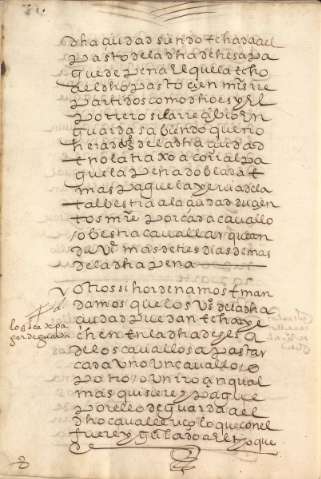 dha ciudad siendo echada a el
pasto de la dha dehesa pa
gue de pena el que la echo
de el dho pasto cien mrs re
partidos como dho es y el
potrero si la rrecibio en
guarda sabiendo que no
hera de vº de la dha ciudad
e no la traxo a corral pa
gue la pena doblada e
mas pague la yerua de la
tal bestia a la ciudad duçen
tos mrs por cada cauallo
o bestia cauallar quan
do vi mas de tres dias demas
de la dha pena
Otrossi hordenamos e man
damos que los vºs de la dha
ciudad puedan echar y e
chen en la dha dehesa
de los cauallos a pastar
cada vno vn cauallo o
potro o vn rocin qual
mas quisiere y pague
por el lo de guarda del
dho cauallerizo lo que con el
fuere ygualado a rrespecto que
los ca xpa
gar de guarda